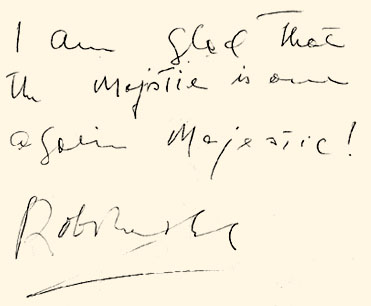 I am glad that
the Majestic is once
again Majestic!